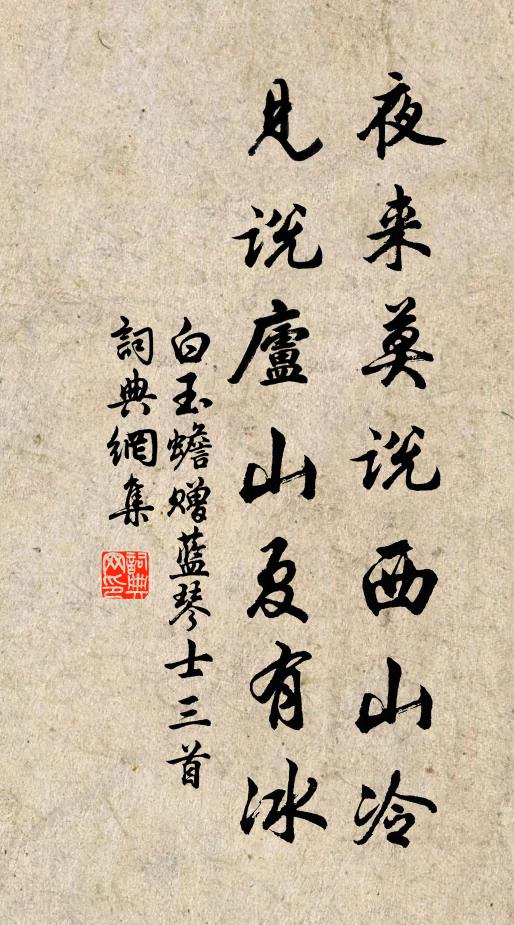 夜来莫说西山冷
见说廬山夏有冰
白玉蟾赠藍琴士三首
詞典網集
詞典网印